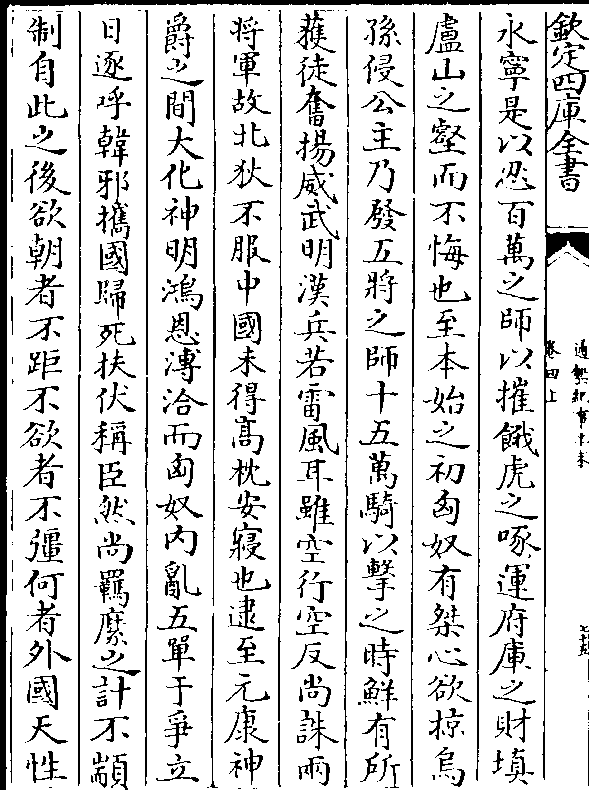 欽定四庫全書
通鑑紀事本末
卷四上
永寧是以忍百萬之師以摧餓虎之喙運府庫之財填
盧山之壑而不悔也至本始之初匈奴有桀心欲掠烏
孫侵公主乃發五將之師十五萬騎以擊之時鮮有所
獲徒奮揚威武明漢兵若雷風耳雖空行空反尚誅兩
将軍故北狄不服中國未得髙枕安寢也逮至元康神
爵之間大化神明鴻恩溥洽而匈奴内亂五單于爭立
日逐呼韓邪攜國歸死扶伏稱臣然尚羈縻之計不顓
制自此之後欲朝者不距不欲者不彊何者外國天性